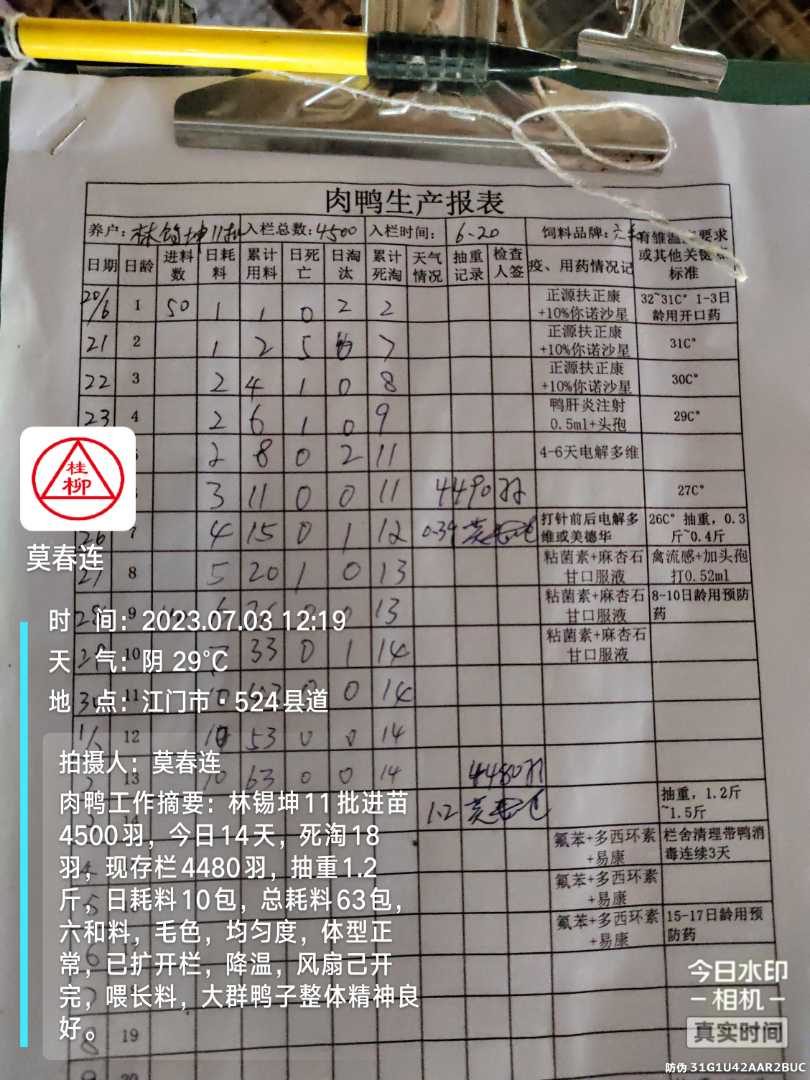 肉鸭生产报表
养户: 林锡坤11批 入栏总数: 4500 入栏时间: 6-20 饲料品牌: 育雏温度要求或其他关键标准
日期 日龄 进料数 日耗料 累计用料 日死亡 日淘汰 累计死淘 天气情况 抽重记录 检查人签 疫、用药情况记
20/6 1 50 1 1 0 2 2 正源扶正康+10%你诺沙星 32~31C° 1-3日龄用开口药
21 2 1 2 5 0 7 正源扶正康+10%你诺沙星 31C°
22 3 2 4 1 0 8 正源扶正康+10%你诺沙星 30C°
23 4 2 6 1 0 9 鸭肝炎注射0.5ml+头孢 29C°
2 8 0 2 11 4-6天电解多维
3 11 0 0 11 4490羽 27C°
26 7 4 15 0 1 12 0.39 打针前后电解多维或美德华 26C° 抽重，0.3斤~0.4斤
27 8 5 20 1 0 13 粘菌素+麻杏石甘口服液 禽流感+加头孢打0.52ml
28 9 0 13 粘菌素+麻杏石甘口服液 8-10日龄用预防药
10 33 0 1 14 粘菌素+麻杏石甘口服液
30 11 0 0 14
1/ 12 10 53 0 0 14
2 13 10 63 0 0 14 4480羽
14 1.2 抽重，1.2斤~1.5斤
氟苯+多西环素+易康 栏舍清理带鸭消毒连续3天
氟苯+多西环素+易康
氟苯+多西环素+易康 15-17日龄用预防药
19
20
桂柳
莫春连
时 间：2023.07.03 12:19
天 气：阴 29℃
地 点：江门市·524县道
拍摄人：莫春连
肉鸭工作摘要：林锡坤11批进苗
4500羽，今日14天，死淘18
羽，现存栏4480羽，抽重1.2
斤，日耗料10包，总耗料63包，
六和料，毛色，均匀度，体型正
常，已扩开栏，降温，风扇己开
完，喂长料，大群鸭子整体精神良
好。
今日水印
相机
真实时间
防伪 31G1U42AAR2BUC